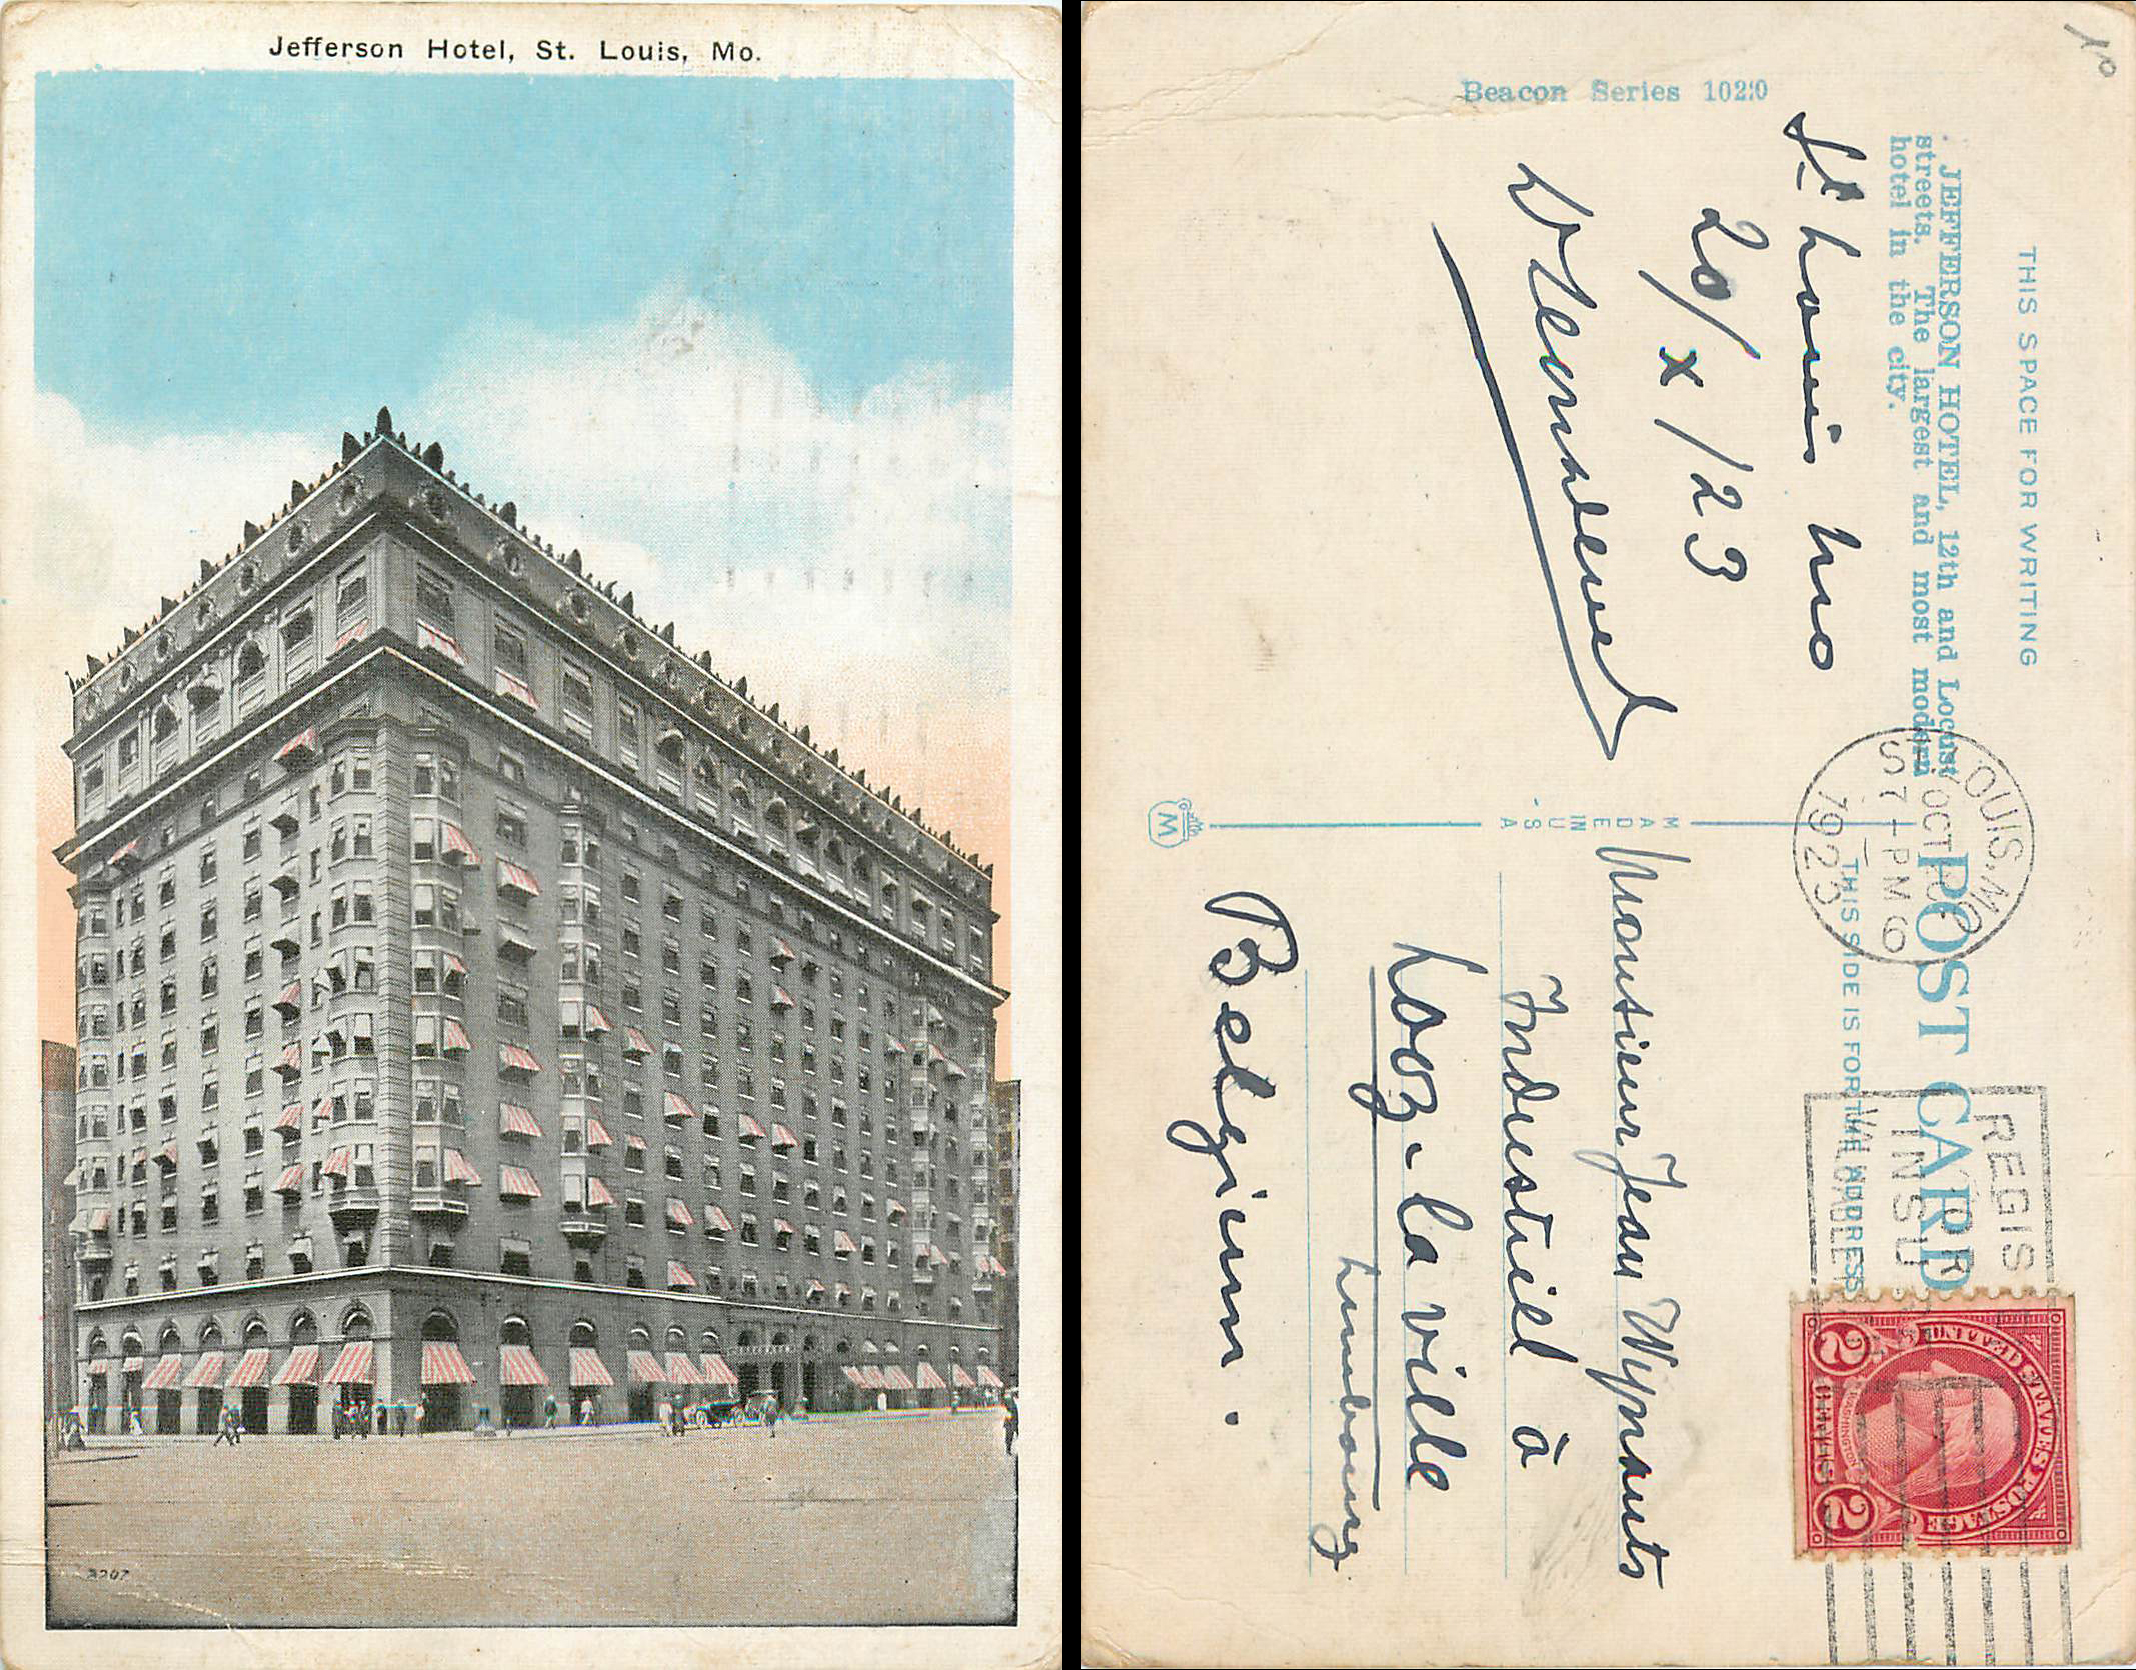 Jefferson Hotel, St. Louis, Mo.
3207
Beacon Series 1020
THIS SPACE FOR WRITING
JEFFERSON HOTEL, 12th and Locust
streets. The largest and most modern
hotel in the city.
St Louis Mo
20/x/23
MADE IN U.S.A
M
POST CARD
THIS SIDE IS FOR THE ADDRESS
LOUIS, MO
OCT
7-PM
192
REGIS
INSU
VALUABLE
UNITED STATES POSTAGE
WASHINGTON
2 CENTS 2
Monsieur Jean Wynants
Industriel à
Looz-la ville
Limbourg
Belgium.